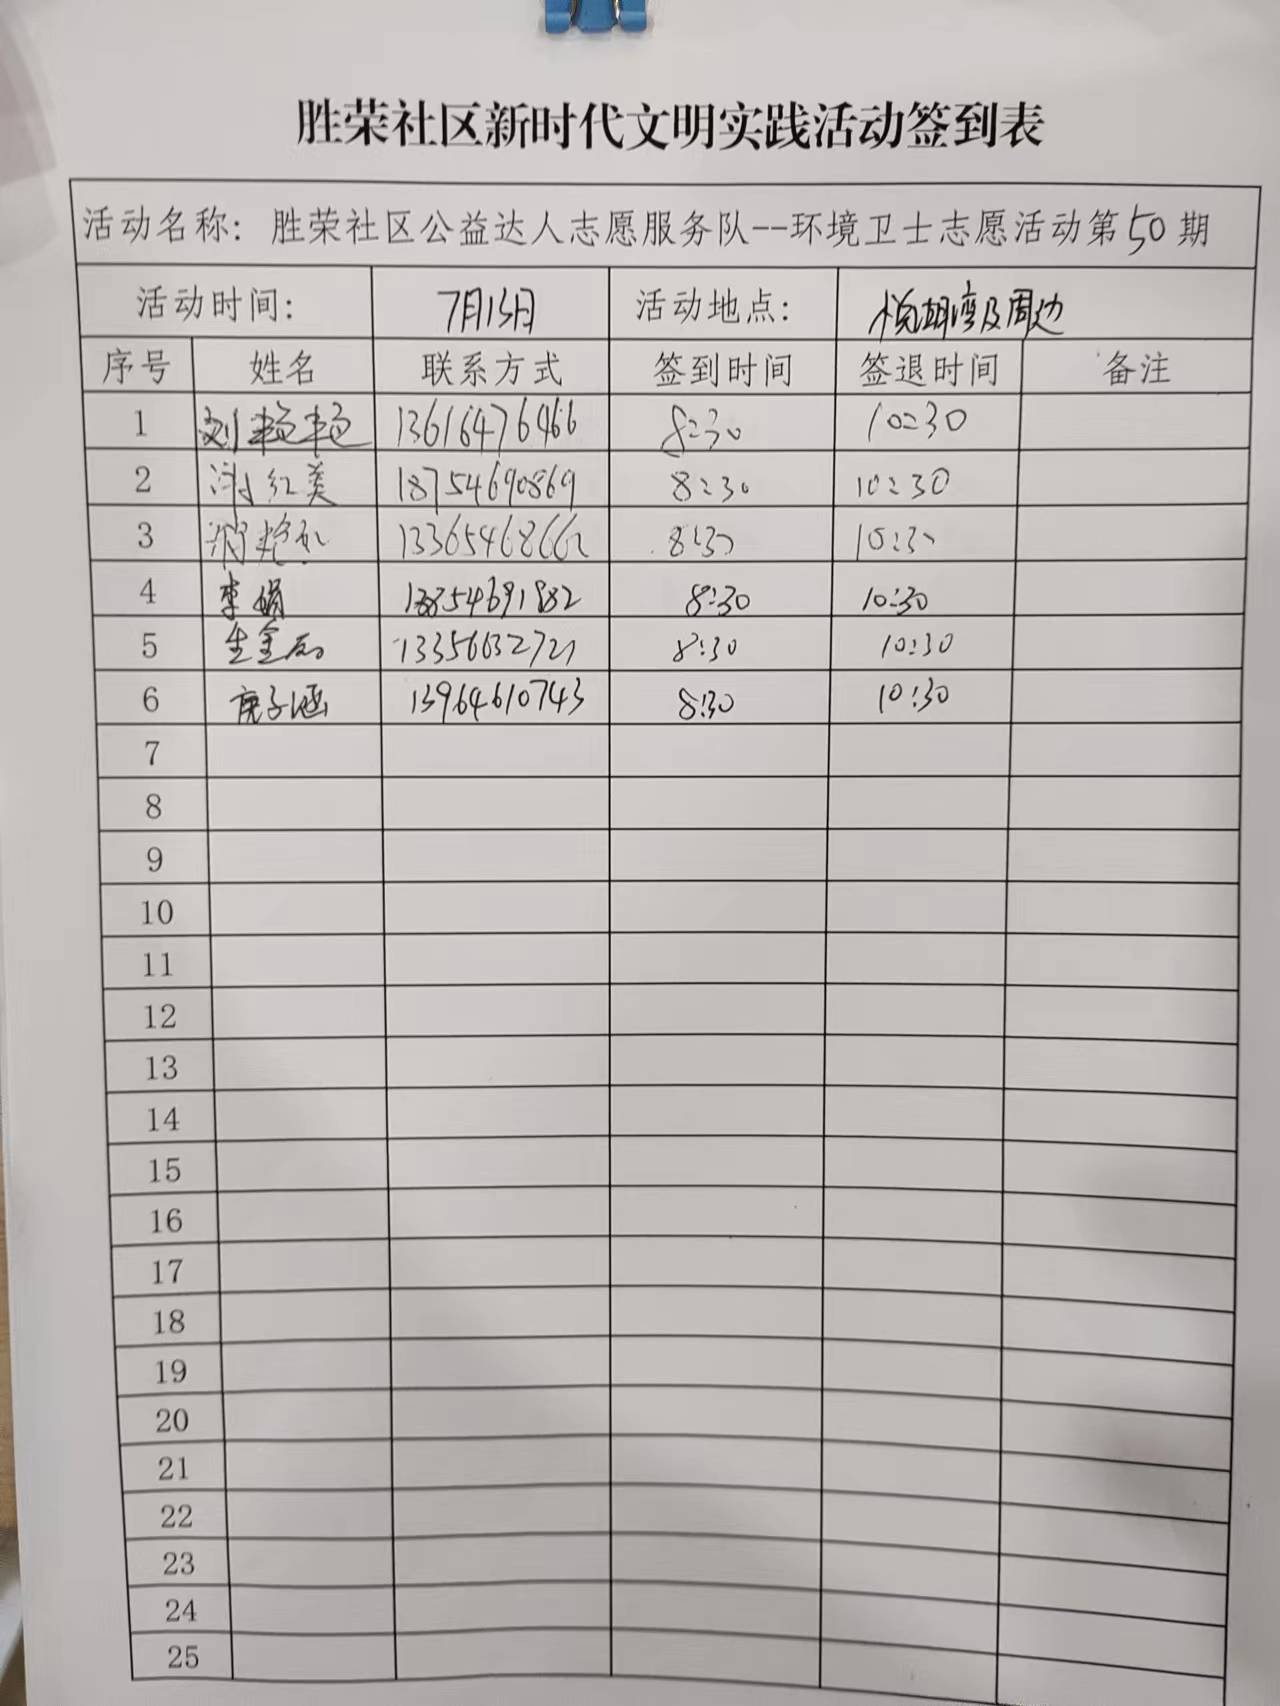 胜荣社区新时代文明实践活动签到表
活动名称：胜荣社区公益达人志愿服务队--环境卫士志愿活动第50期
活动时间： 7月13日 活动地点： 悦湖湾及周边
序号 姓名 联系方式 签到时间 签退时间 备注
1 刘艳艳 13616476466 8:30 10:30
2 谢红美 18754690869 8:30 10:30
3 1336546866 8:30 10:30
4 李娟 13854691982 8:30 10:30
5 生金 13356632721 8:30 10:30
6 庹子涵 13964610743 8:30 10:30
7
8
9
10
11
12
13
14
15
16
17
18
19
20
21
22
23
24
25